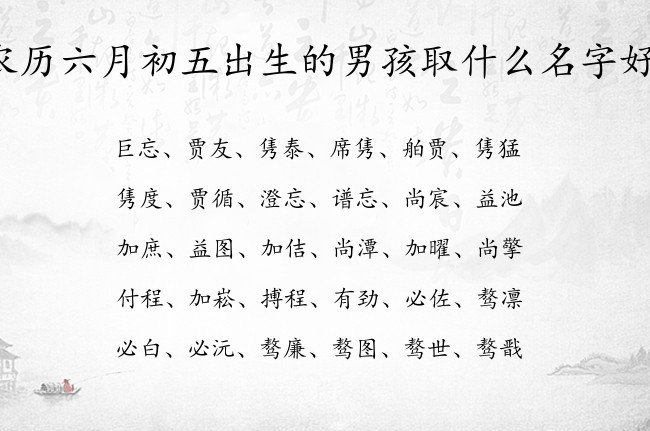 农历六月初五出生的男孩取什么名字好
巨忘、贾友、隽泰、席隽、舶贾、隽猛
隽度、贾循、澄忘、谱忘、尚宸、益池
加庶、益图、加佶、尚潭、加曜、尚擎
付程、加崧、搏程、有劲、必佐、骜凛
必白、必沅、骜廉、骜图、骜世、骜戬